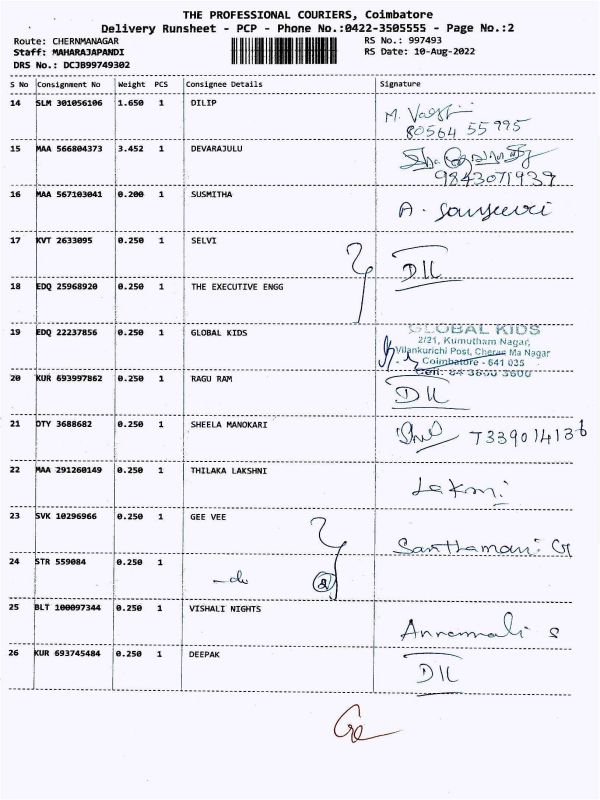 THE PROFESSIONAL COURIERS, Coimbatore
Delivery Runsheet - PCP - Phone No.:0422-3505555 - Page No.:2
Route: CHERNMANAGAR RS No.: 997493
Staff: MAHARAJAPANDI RS Date: 10-Aug-2022
DRS No.: DCJB99749302
S No Consignment No Weight PCS Consignee Details Signature
14 SLM 301056106 1.650 1 DILIP
80564 55995
15 MAA 566804373 3.452 1 DEVARAJULU
9843071939
16 MAA 567103041 0.200 1 SUSMITHA
17 KVT 2633095 0.250 1 SELVI DIL
18 EDQ 25968920 0.250 1 THE EXECUTIVE ENGG
19 EDQ 22237856 0.250 1 GLOBAL KIDS GLOBAL KIDS
2/21, Kumutham Nagar,
Vilankurichi Post, Cheran Ma Nagar
Coimbatore - 641 035
Cell: 84 3800 3600
20 KUR 693997862 0.250 1 RAGU RAM DIL
21 OTY 3688682 0.250 1 SHEELA MANOKARI
22 MAA 291260149 0.250 1 THILAKA LAKSHNI Lakmi
23 SVK 10296966 0.250 1 GEE VEE Santhamani. G
24 STR 559084 0.250 1 -do 2
25 BLT 100097344 0.250 1 VISHALI NIGHTS Annamali s
26 KUR 693745484 0.250 1 DEEPAK DIL